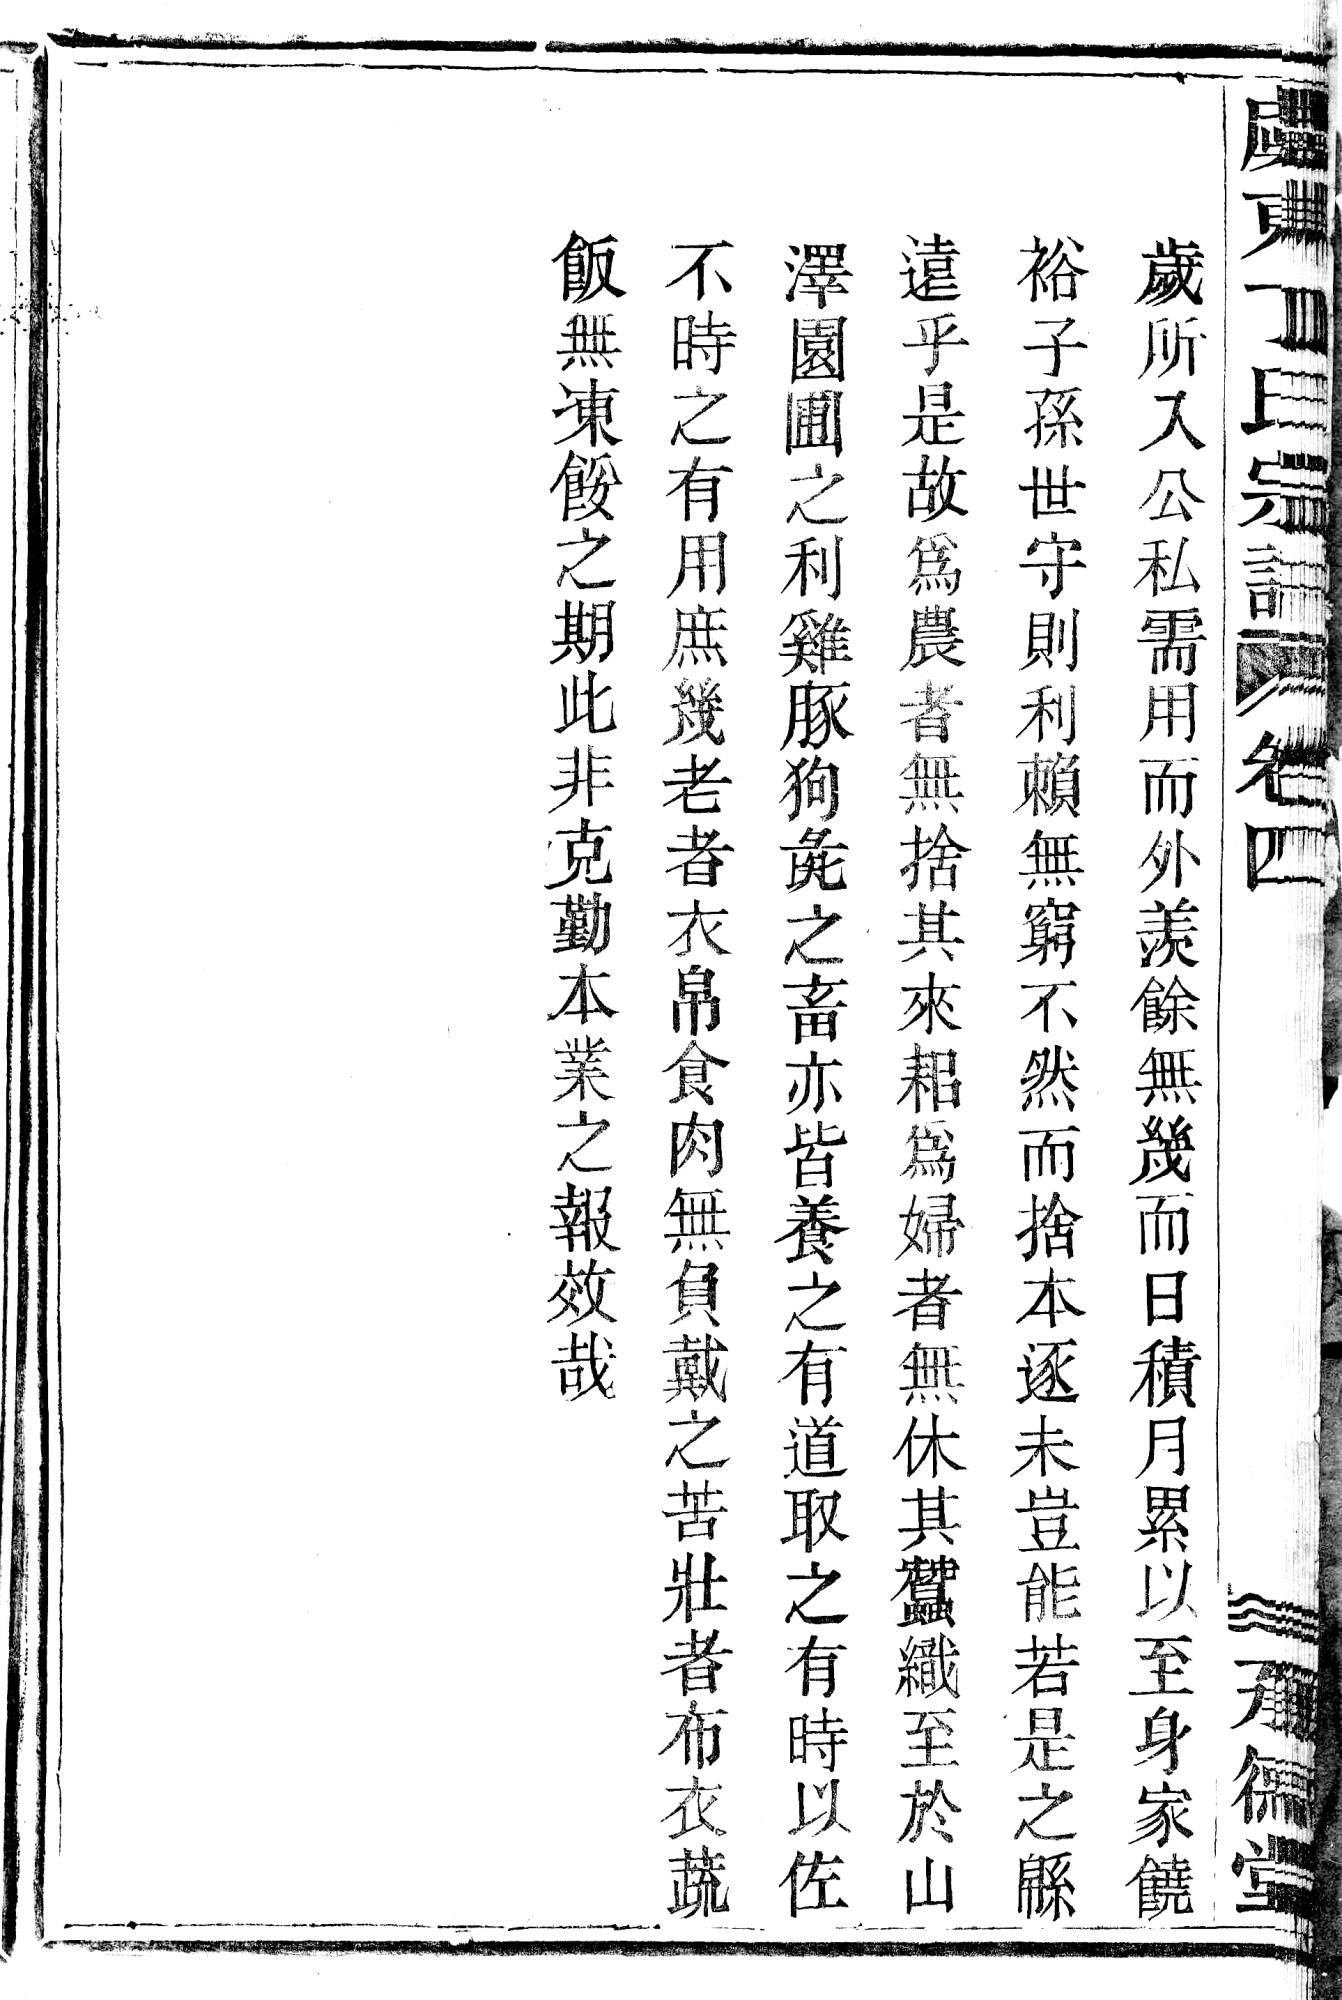 東丁氏宗譜 卷四 承德堂
歲所入公私需用而外羨餘無幾而日積月累以至身家饒
裕子孫世守則利賴無窮不然而捨本逐未豈能若是之緜
遠乎是故為農者無捨其來耜為婦者無休其蠶織至於山
澤園圃之利雞豚狗彘之畜亦皆養之有道取之有時以佐
不時之有用庶幾老者衣帛食肉無負戴之苦壯者布衣蔬
飯無凍餒之期此非克勤本業之報效哉